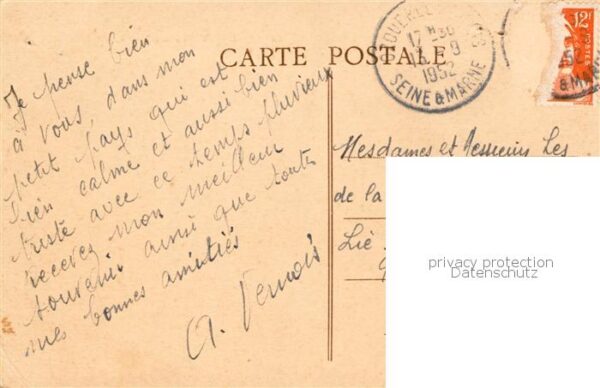 CARTE POSTALE
Je pense bien
à vous, dans mon
petit pays qui est
bien calme et aussi bien
triste avec ce temps pluvieux
recevez mon meilleur
souvenir ainsi que toutes
mes bonnes amitiés
A. Vernois
17 H 30
9
1932
SEINE & MARNE
12F
POSTES
Mesdames et Messieurs Les
de la
privacy protection
Datenschutz